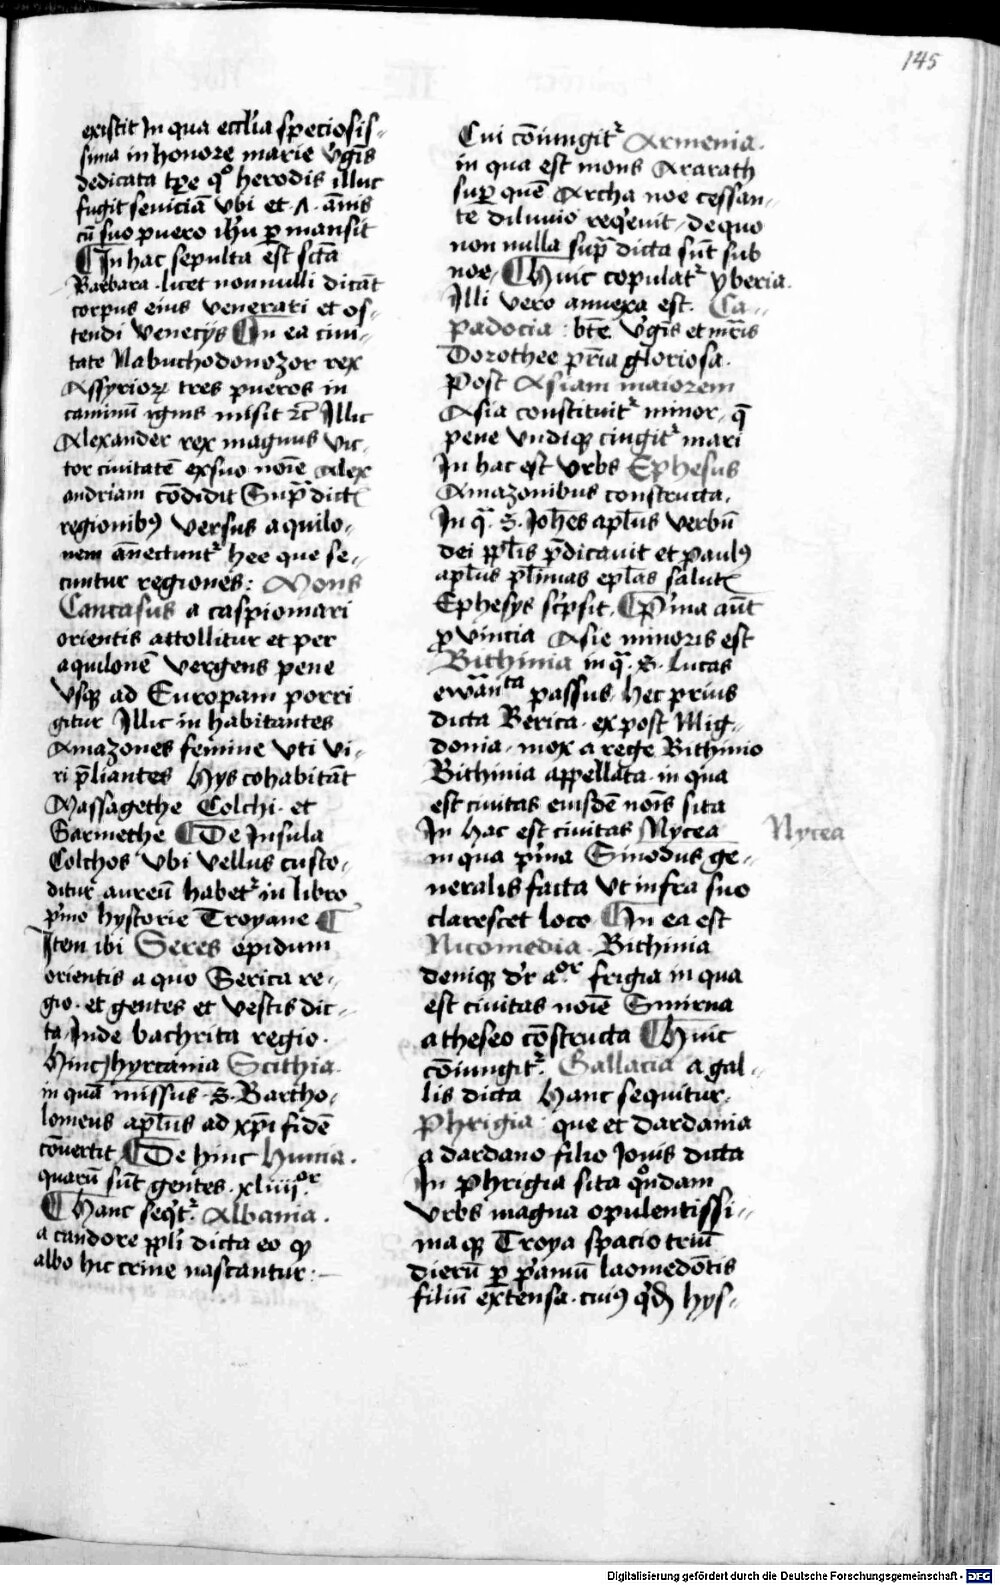 145
existit In qua eccl'ia speciosis-
sima in honore marie v'gīs
dedicata tp̄e q° herodis illuc
fugit seviciā vbi et ᴧ annis
cū suo puero ih̄u p mansit
In hac sepulta est sctā
Barbara . licet nonnulli dicāt
corpus eius venerari et os-
tendi venecijs In ea ciui-
tate Nabuchodonozor rex
Assyrioꝝ tres pueros in
caminū ignis misit ꝛc̄ Illic
Alexander rex magnus vic-
tor ciuitatē ex suo noīe Alex
andriam cōdidit Sup̄ dict
regionibꝰ versus aquilo-
nem ānectunt᷑ hee que se-
cuntur regiones : Mons
Caucasus a caspio mari
orientis attollitur et per
aquilonē vergens pene
vsqꝫ ad Europam porri
gitur Illic in habitantes
Amazones femine vti vi-
ri p̄liantes Hys cohabitāt
Massagethe Colchi . et
Sarmethe De Insula
Colchos vbi vellus custo-
ditur aureū habet᷑ in libro
p'mo hystorie Troyane
Item ibi Seres opidum
orientis a quo Serica re-
gio . et gentes et vestis dic-
ta . Inde bachrita regio .
Hinc hyrcania Scithia .
in quā missus . S . Bartho-
lomeus apl'us ad xp̄i fidē
cōuertit De hinc Hunia .
quarū sūt gentes . xliiij.or
Hanc seq't᷑ . Albania .
a candore ppl'i dicta eo qꝫ
albo hic crine nascantur : -
Cui cōiungit᷑ Armenia .
in qua est mons Ararath
sup quē Archa noe cessan-
te diluuio req'euit . de quo
non nulla sup̄ dicta sūt sub
noe . Huic copulat᷑ yberia .
Illi vero annexa est . Ca-
padocia : btē v'gīs et mr̄is
Dorothee pr̄ia gloriosa .
Post Asiam maiorem
Asia constituit᷑ minor . q̄
pene vndiqꝫ cingit᷑ mari
In hac est vrbs Ephesus
Amazonibus constructa .
In q̄ . S . Joh̄es apl'us verbū
dei ppl'is p̄dicauit et paulꝰ
apl'us pl'imas epl'as salut
Ephesys sc'psit . P'ma aūt
p vincia Asie minoris est
Bithinia in q̄ . S . Lucas
ewānta passus . hec prius
dicta Berica . ex post Mig-
donia . mox a rege Bithinio
Bithinia appellata . in qua
est ciuitas eiusdē noīs sita
In hac est ciuitas Nycea
Nycea
in qua p'ma Sinodus ge-
neralis facta vt infra suo
clarescet loco In ea est
Nicomedia . Bithinia
deniqꝫ d'r a.or frigia in qua
est ciuitas noīe Smirna
a theseo cōstructa Huic
cōiungit᷑ . Gallacia a gal-
lis dicta Hanc sequitur .
Phrigia . que et dardania
a dardano filio Jouis dicta
In phrigia sita q°ndam
vrbs magna opulentissi-
maqꝫ Troya spacio triū
dierū p p'amū laomedōtis
filiū extensa . cuiꝰ q'd hys-
Digitalisierung gefördert durch die Deutsche Forschungsgemeinschaft - DFG